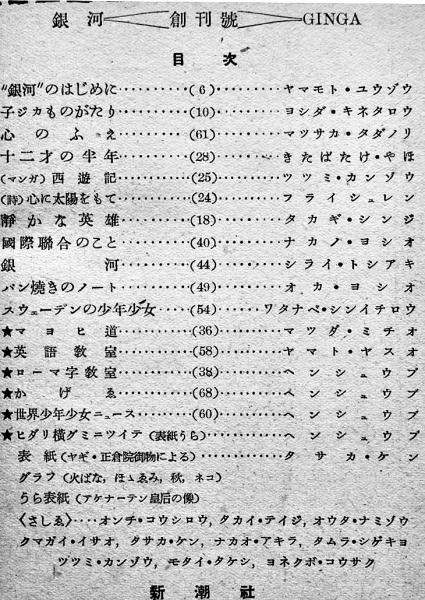 銀河 創刊號 GINGA
目次
“銀河”のはじめに………(6)………ヤマモト・ユウゾウ
子ジカものがたり………(10)………ヨシダ・キネタロウ
心のふえ………(61)………マツサカ・タダノリ
十二才の半年………(28)………きたばたけ・やほ
(マンガ)西遊記………(25)………ツツミ・カンゾウ
(詩)心に太陽をもて………(24)………フライシュレン
靜かな英雄………(18)………タカギ・シンジ
國際聯合のこと………(40)………ナカノ・ヨシオ
銀河………(44)………シライ・トシアキ
パン燒きのノート………(49)………オカ・ヨシオ
スウェーデンの少年少女………(54)………ワタナベ・シンイチロウ
★マヨヒ道………(36)………マツダ・ミチオ
★英語教室………(58)………ヤマト・ヤスオ
★ローマ字教室………(38)………ヘンシュウブ
★かげゑ………(68)………ヘンシュウブ
★世界少年少女ニュース………(60)………ヘンシュウブ
★ヒダリ橫グミニツイテ(表紙うら)………ヘンシュウブ
表紙(ヤギ・正倉院御物による)………タサカ・ケン
グラフ(火ばな, ほゝゑみ, 秋, ネコ)
うら表紙(アケナーテン皇后の像)
〈さしゑ〉‥‥オンチ・コウシロウ, タカイ・テイジ, オウタ・ナミゾウ
クマガイ・イサオ, タサカ・ケン, ナカオ・アキラ, タムラ・シゲキヨ
ツツミ・カンゾウ, モタイ・タケシ, ヨネクボ・コウサク
新潮社